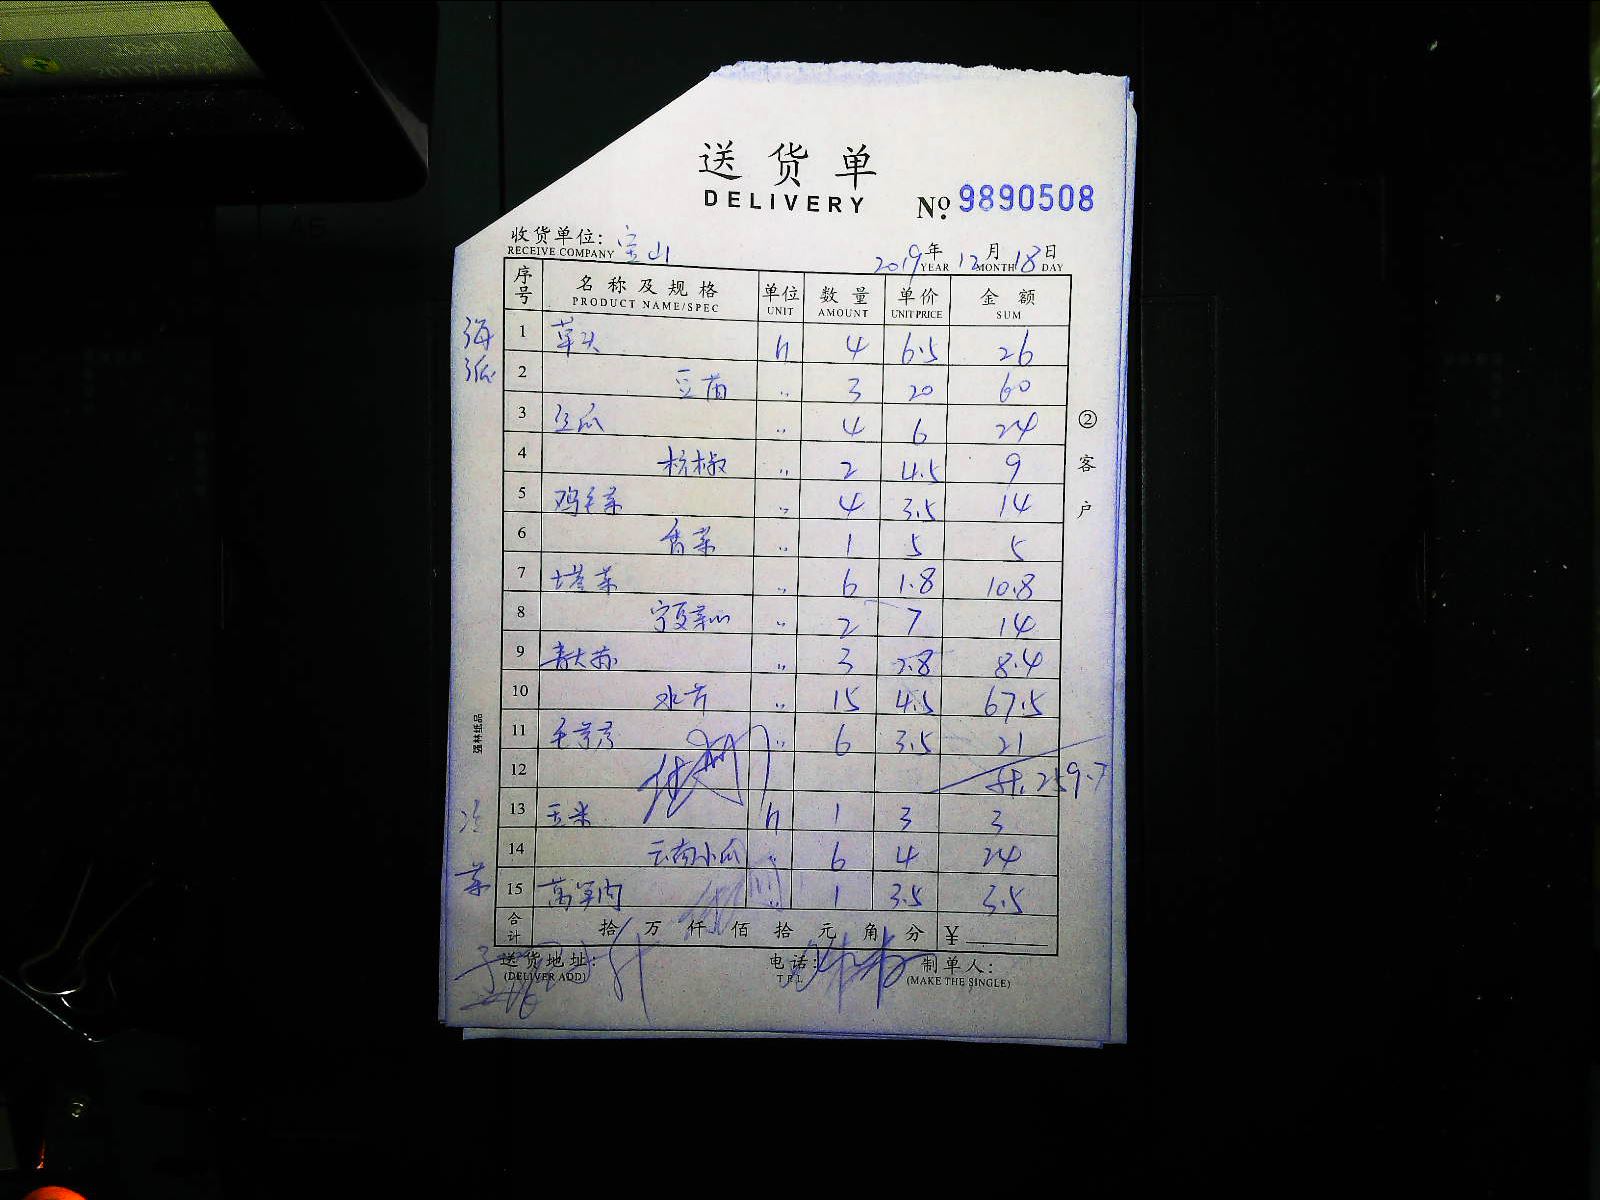 送货单
DELIVERY
No. 9890508
收货单位: 宝山
RECEIVE COMPANY
2019年12月18日
YEAR MONTH DAY
序号 名称及规格 单位 数量 单价 金额
PRODUCT NAME/SPEC UNIT AMOUNT UNIT PRICE SUM
1 草头 4 6.5 26
2 豆苗 〃 3 20 60
3 丝瓜 〃 4 6 24
4 杭椒 〃 2 4.5 9
5 鸡毛菜 〃 4 3.5 14
6 香菜 〃 1 5 5
7 塔菜 〃 6 1.8 10.8
8 宁夏菜心 〃 2 7 14
9 〃 3 2.8 8.4
10 水芹 〃 15 4.5 67.5
11 毛 〃 6 3.5 21
12 计.259.7
13 玉米 1 3 3
14 云南小瓜 〃 6 4 24
15 莴笋肉 〃 1 3.5 3.5
合计 拾 万 仟 佰 拾 元 角 分 ¥
送货地址:
(DELIVER ADD)
电话:
TEL
制单人:
(MAKE THE SINGLE)
②客户
强林纸品